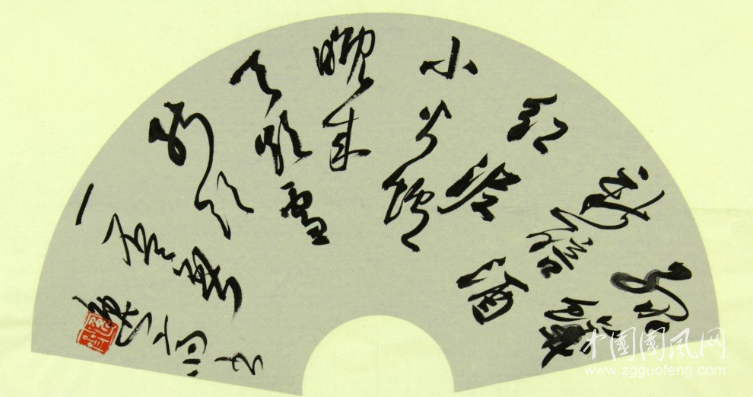 绿蟻
新醅酒
红泥
小火爐
晚来
天欲雪
能饮
一杯無
中国国风网
www.zgguofeng.com